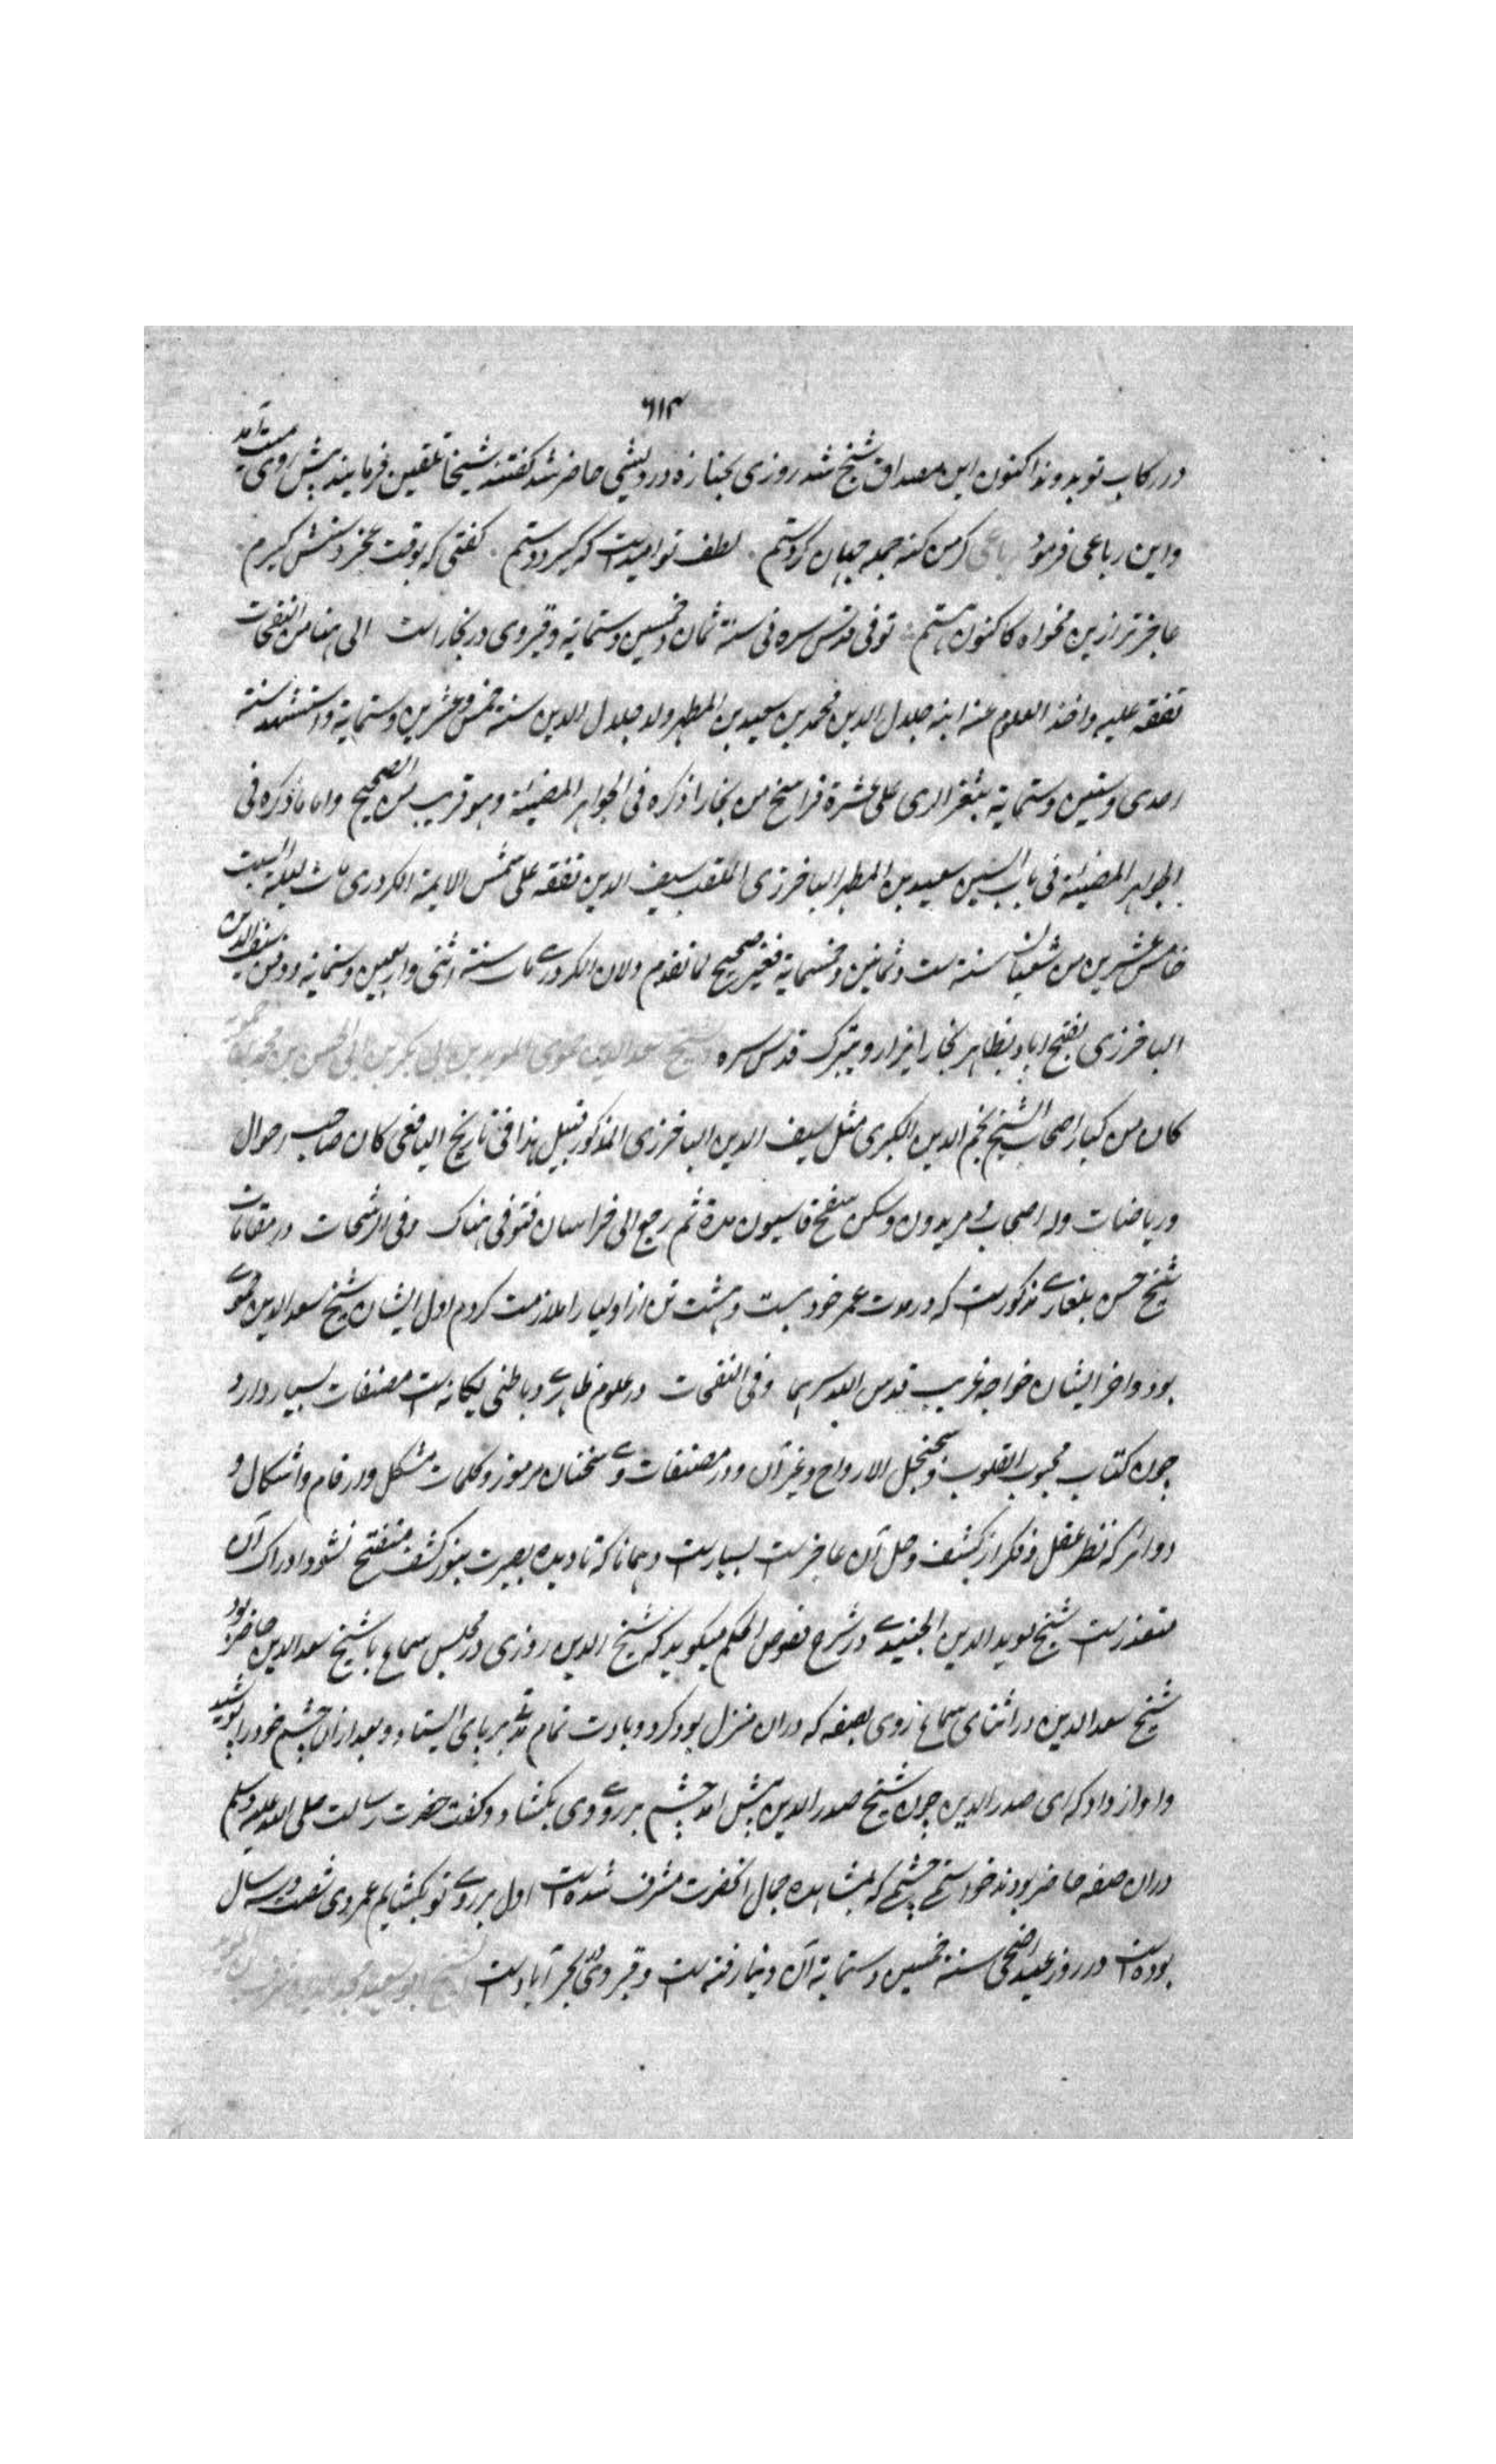 ٦١٣
در رکاب تو بدوند اکنون این مصداق شیخ شد روزی بجنازه درویشی حاضر شد گفتند شیخا تلقین فرمایند پیش روی میت آمد
و این رباعی فرمود رباعی گر من گنه جمله جهان کردستم لطف تو امیدست که گیرد دستم گفتی که بوقت عجز دستش گیرم
عاجزتر ازین مخواه کاکنون هستم توفی قدس سره فی سنة ثمان و خمسین وستمایة و قبر وی در بخارا است الی هنا من النفحات
تفقه علیه واخذ العلوم عنه ابنه جلال الدین محمد بن سعید بن المطهر ولد جلال الدین سنة خمس وعشرین وستمایة واستشهد سنة
احدی وستین وستمایة بثغر الری علی عشرة فراسخ من بخارا ذکره فی الجواهر المضیئة وهو قریب من الصحیح واما ما ذکره فی
الجواهر المضیئة فی باب السین سعید بن المطهر الباخرزی الملقب سیف الدین تفقه علی شمس الایمة الکردری مات لیلة السبت
خامس عشرین من شعبان سنة ست وثمانین وخمسمایة فغیر صحیح لما تقدم ولان الکردری مات سنة اثنی واربعین وستمایة ودفن سیف الدین
الباخرزی بفتح اباد بظاهر بخارا یزار ویتبرک قدس سره الشیخ سعد الدین حموی المؤید بن ابی بکر بن ابی الحسن بن محمد بن حمویه
کان من کبار اصحاب الشیخ نجم الدین الکبری مثل سیف الدین الباخرزی المذکور قبیل هذا فی تاریخ الیافعی کان صاحب احوال
وریاضات وله اصحاب ومریدون وسکن سفح قاسیون مدة ثم رجع الی خراسان فتوفی هناک وفی الرشحات در مقامات
شیخ حسن بلغاری مذکورست که در مدت عمر خود بیست و هشت تن از اولیا را ملازمت کردم اول ایشان شیخ سعد الدین حموی
بود و اخر ایشان خواجه غریب قدس الله سرهما وفی النفحات در علوم ظاهری و باطنی یگانه است مصنفات بسیار دارد
چون کتاب محبوب القلوب و سجنجل الارواح و غیر آن و در مصنفات وی سخنان مرموز و کلمات مشکل و ارقام و اشکال و
دوائر که نظر عقل و فکر از کشف و حل آن عاجزست بسیارست و همانا که تا دیده بصیرت بنور کشف منفتح نشود ادراک آن
متعذرست شیخ موید الدین الجنیدی در شرح فصوص الحکم میگوید که شیخ الدین روزی در مجلس سماع با شیخ سعد الدین حاضر بود
شیخ سعد الدین در اثنای سماع روی بصفه که دران منزل بود کرد و بادب تمام مدتی بر پای ایستاد و بعد ازان چشم خود را پوشید
و اواز داد که ای صدر الدین چون شیخ صدر الدین پیش امد چشم بر روی وی بکشاد و گفت حضرت رسالت صلی الله علیه وسلم
دران صفه حاضر بودند خواستم چشمی که بمشاهده جمال انحضرت مشرف شده است اول بر روی تو بکشایم عمر وی شصت و سه سال
بوده است در روز عید اضحی سنة خمسین وستمایة از دنیا رفته است و قبر وی در بحرآبادست الشیخ ابو سعید مجد الدین شرف بن المؤید